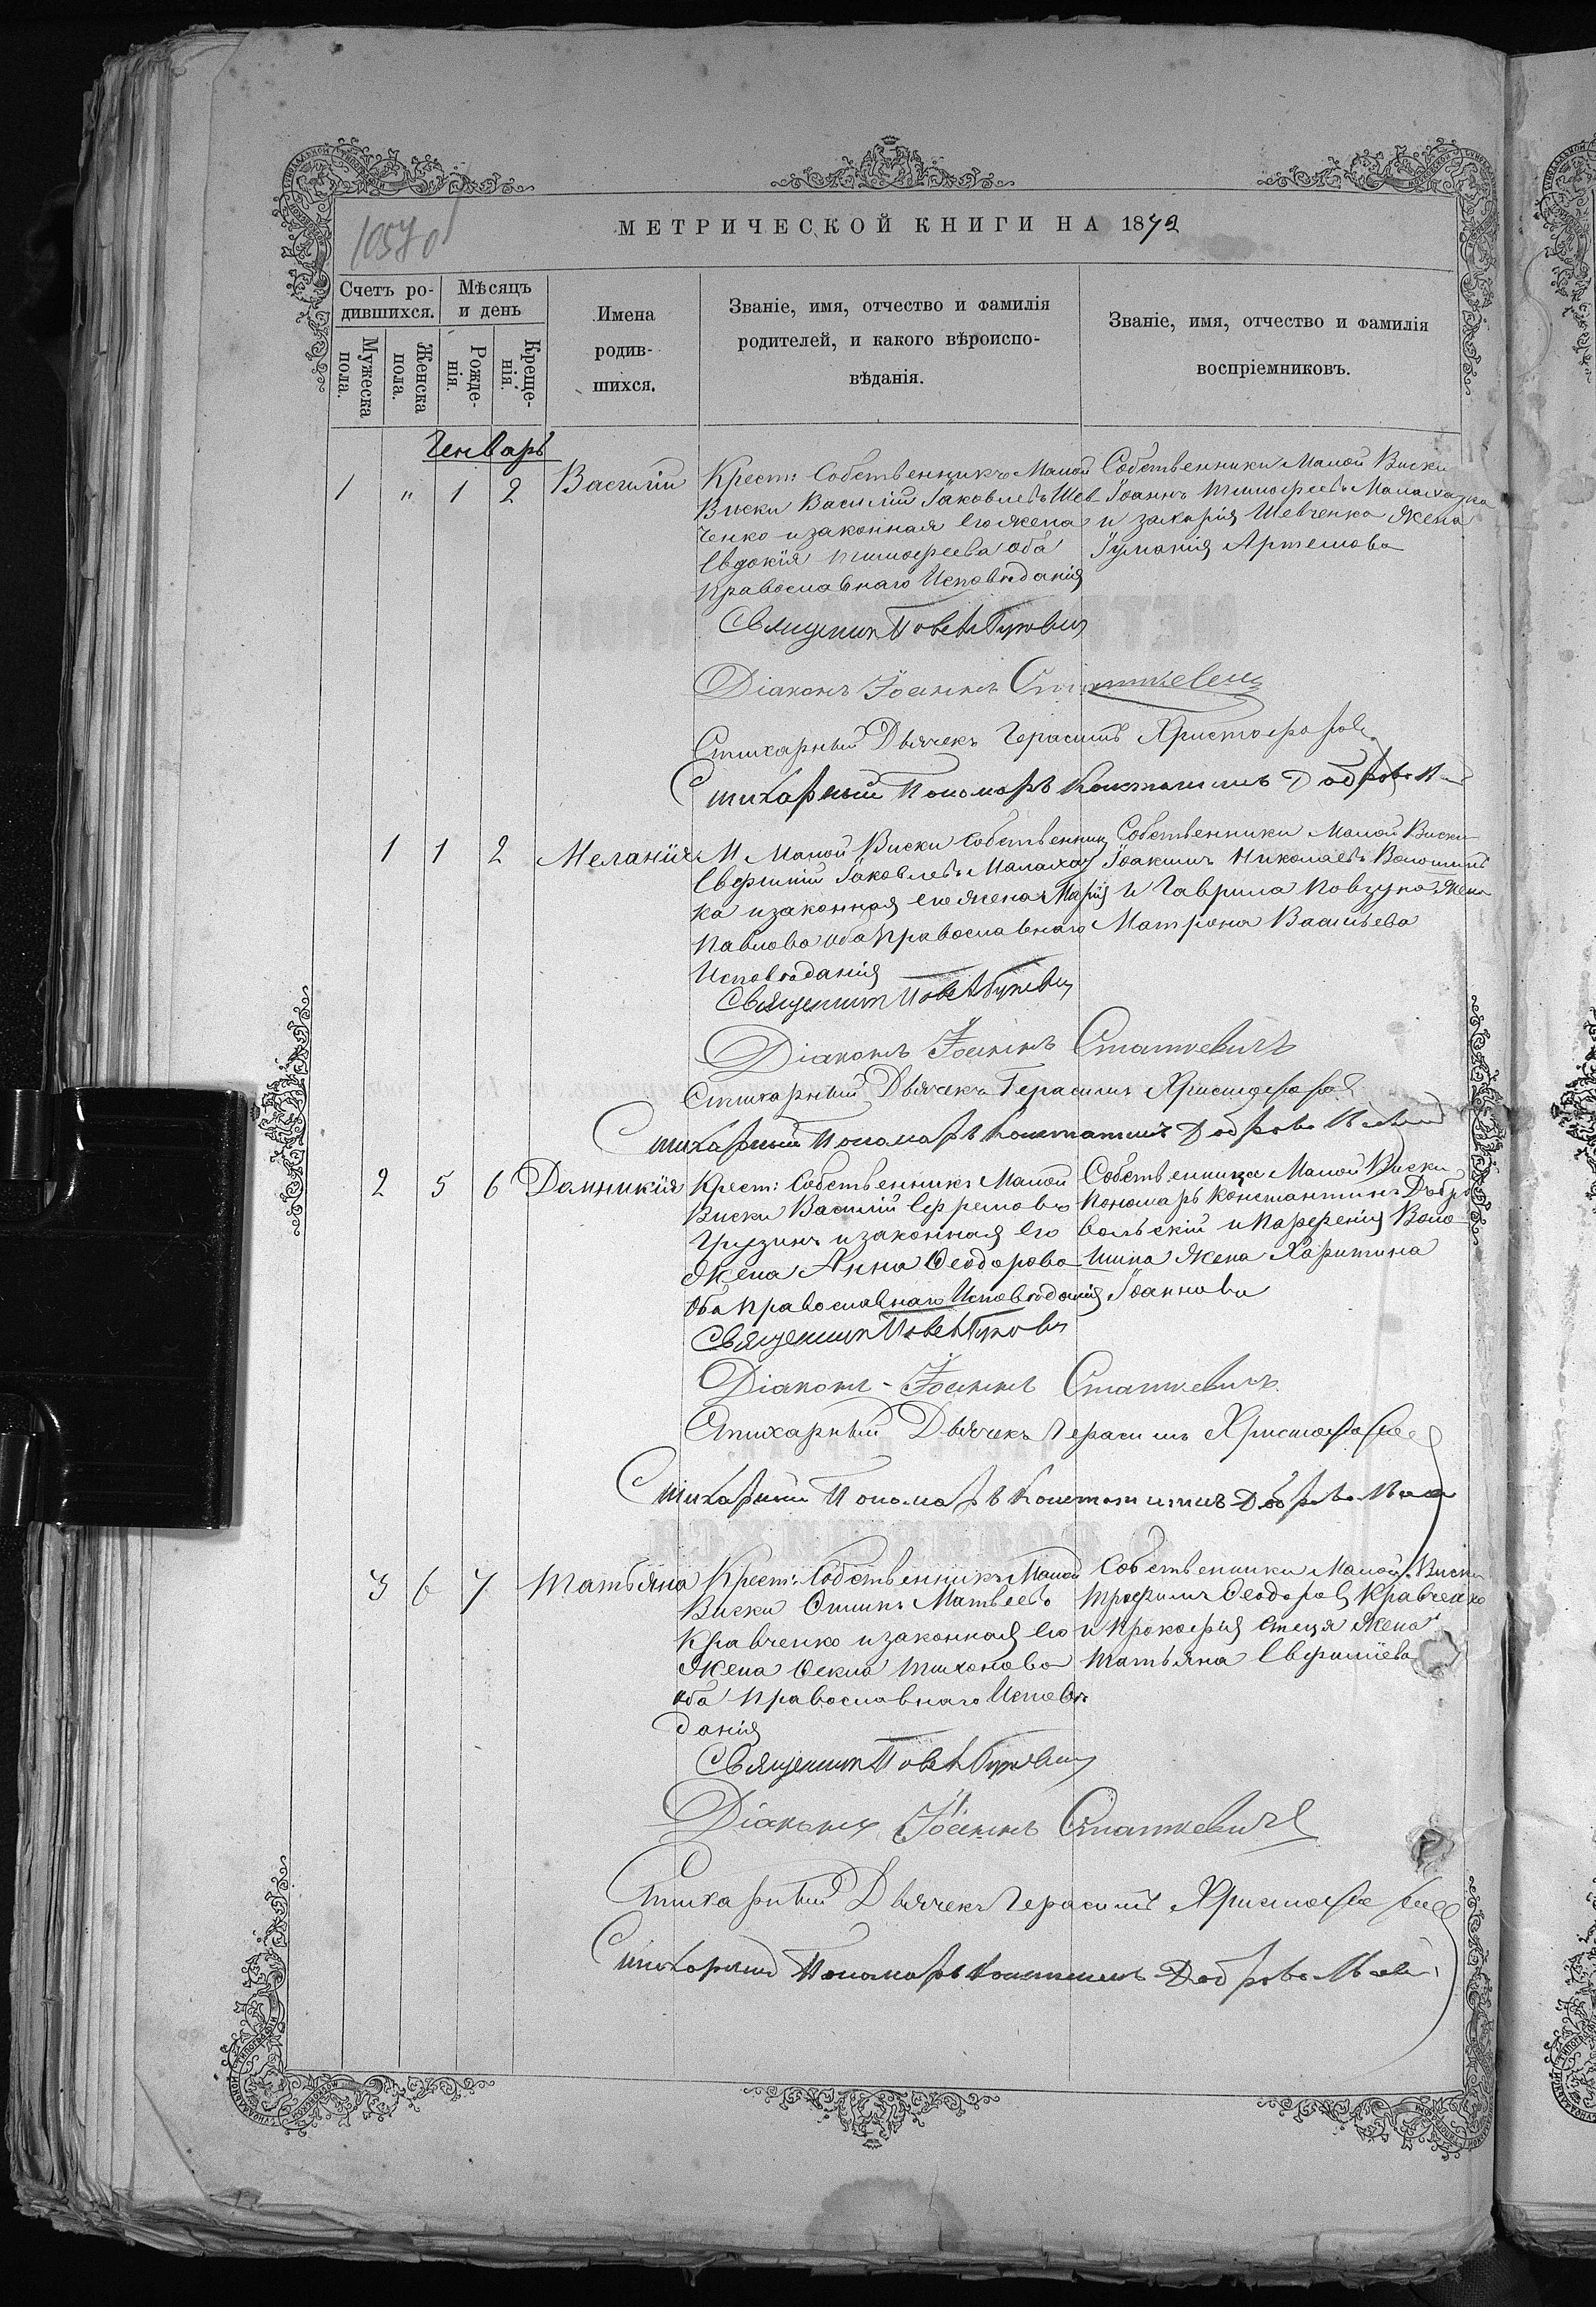 МЕТРИЧЕСКОЙ КНИГИ НА 1872
Счетъ ро-
дившихся.
Мѣсяцъ
и день
Мужеска
пола.
Женска
пола.
Рожде-
нія.
Креще-
нія.
Имена
родив-
шихся.
Званіе, имя, отчество и фамилія
родителей, и какого вѣроиспо-
вѣданія.
Званіе, имя, отчество и фамилія
воспріемниковъ.
Генварь
1 " 1 2 Василій
Крест: Собственникъ Малой
Виски Василій Іаковлевъ Шев-
ченко и законная его жена
Евдокія Тимофеева оба
Православнаго Исповѣданія
Собственники Малой Виски
Іоаннъ Тимофеевъ
и Захарія Шевченка жена
Артемова
Священникъ
Діаконъ Іоаннъ Статкевичъ
Стихарный Дьячекъ Герасимъ Христофоровъ
Стихарный Пономарь Константинъ
1 1 2 Меланія
Малой Виски собственник
Іаковлевъ Малахов
ка и законная его жена Марія
Павлова оба Православнаго
Исповѣданія
Собственники Малой Виски
Іоакимъ Николаевъ
и Гаврила Повзуна жена
Матрона Васильева
Священникъ
Діаконъ Іоаннъ Статкевичъ
Стихарный Дьячекъ Герасимъ Христофоровъ
Стихарный Пономарь Константинъ
2 5 6 Домникія
Крест: Собственникъ Малой
Виски Василій Ефремовъ
Грузинъ и законная его
жена Анна Феодорова
оба Православнаго Исповѣданія
Малой Виски
Пономарь Константинъ Добро
вольскій и Парфенія Воло
шина жена Харитина
Іоаннова
Священникъ
Діаконъ - Іоаннъ Статкевичъ
Стихарный Дьячекъ Герасимъ Христофоровъ
Стихарный Пономарь Константинъ
3 6 7 Татьяна
Крест: Собственникъ Малой
Виски Матвеевъ
Кравченко и законная его
жена Фекла Тихонова
оба Православнаго Исповѣ
данія
Собственники Малой Виски
Трофимъ Феодоровъ Кравченко
и Прокофія жена
Татьяна
Священникъ
Діаконъ Іоаннъ Статкевичъ
Стихарный Дьячекъ Герасимъ Христофоровъ
Стихарный Пономарь Константинъ